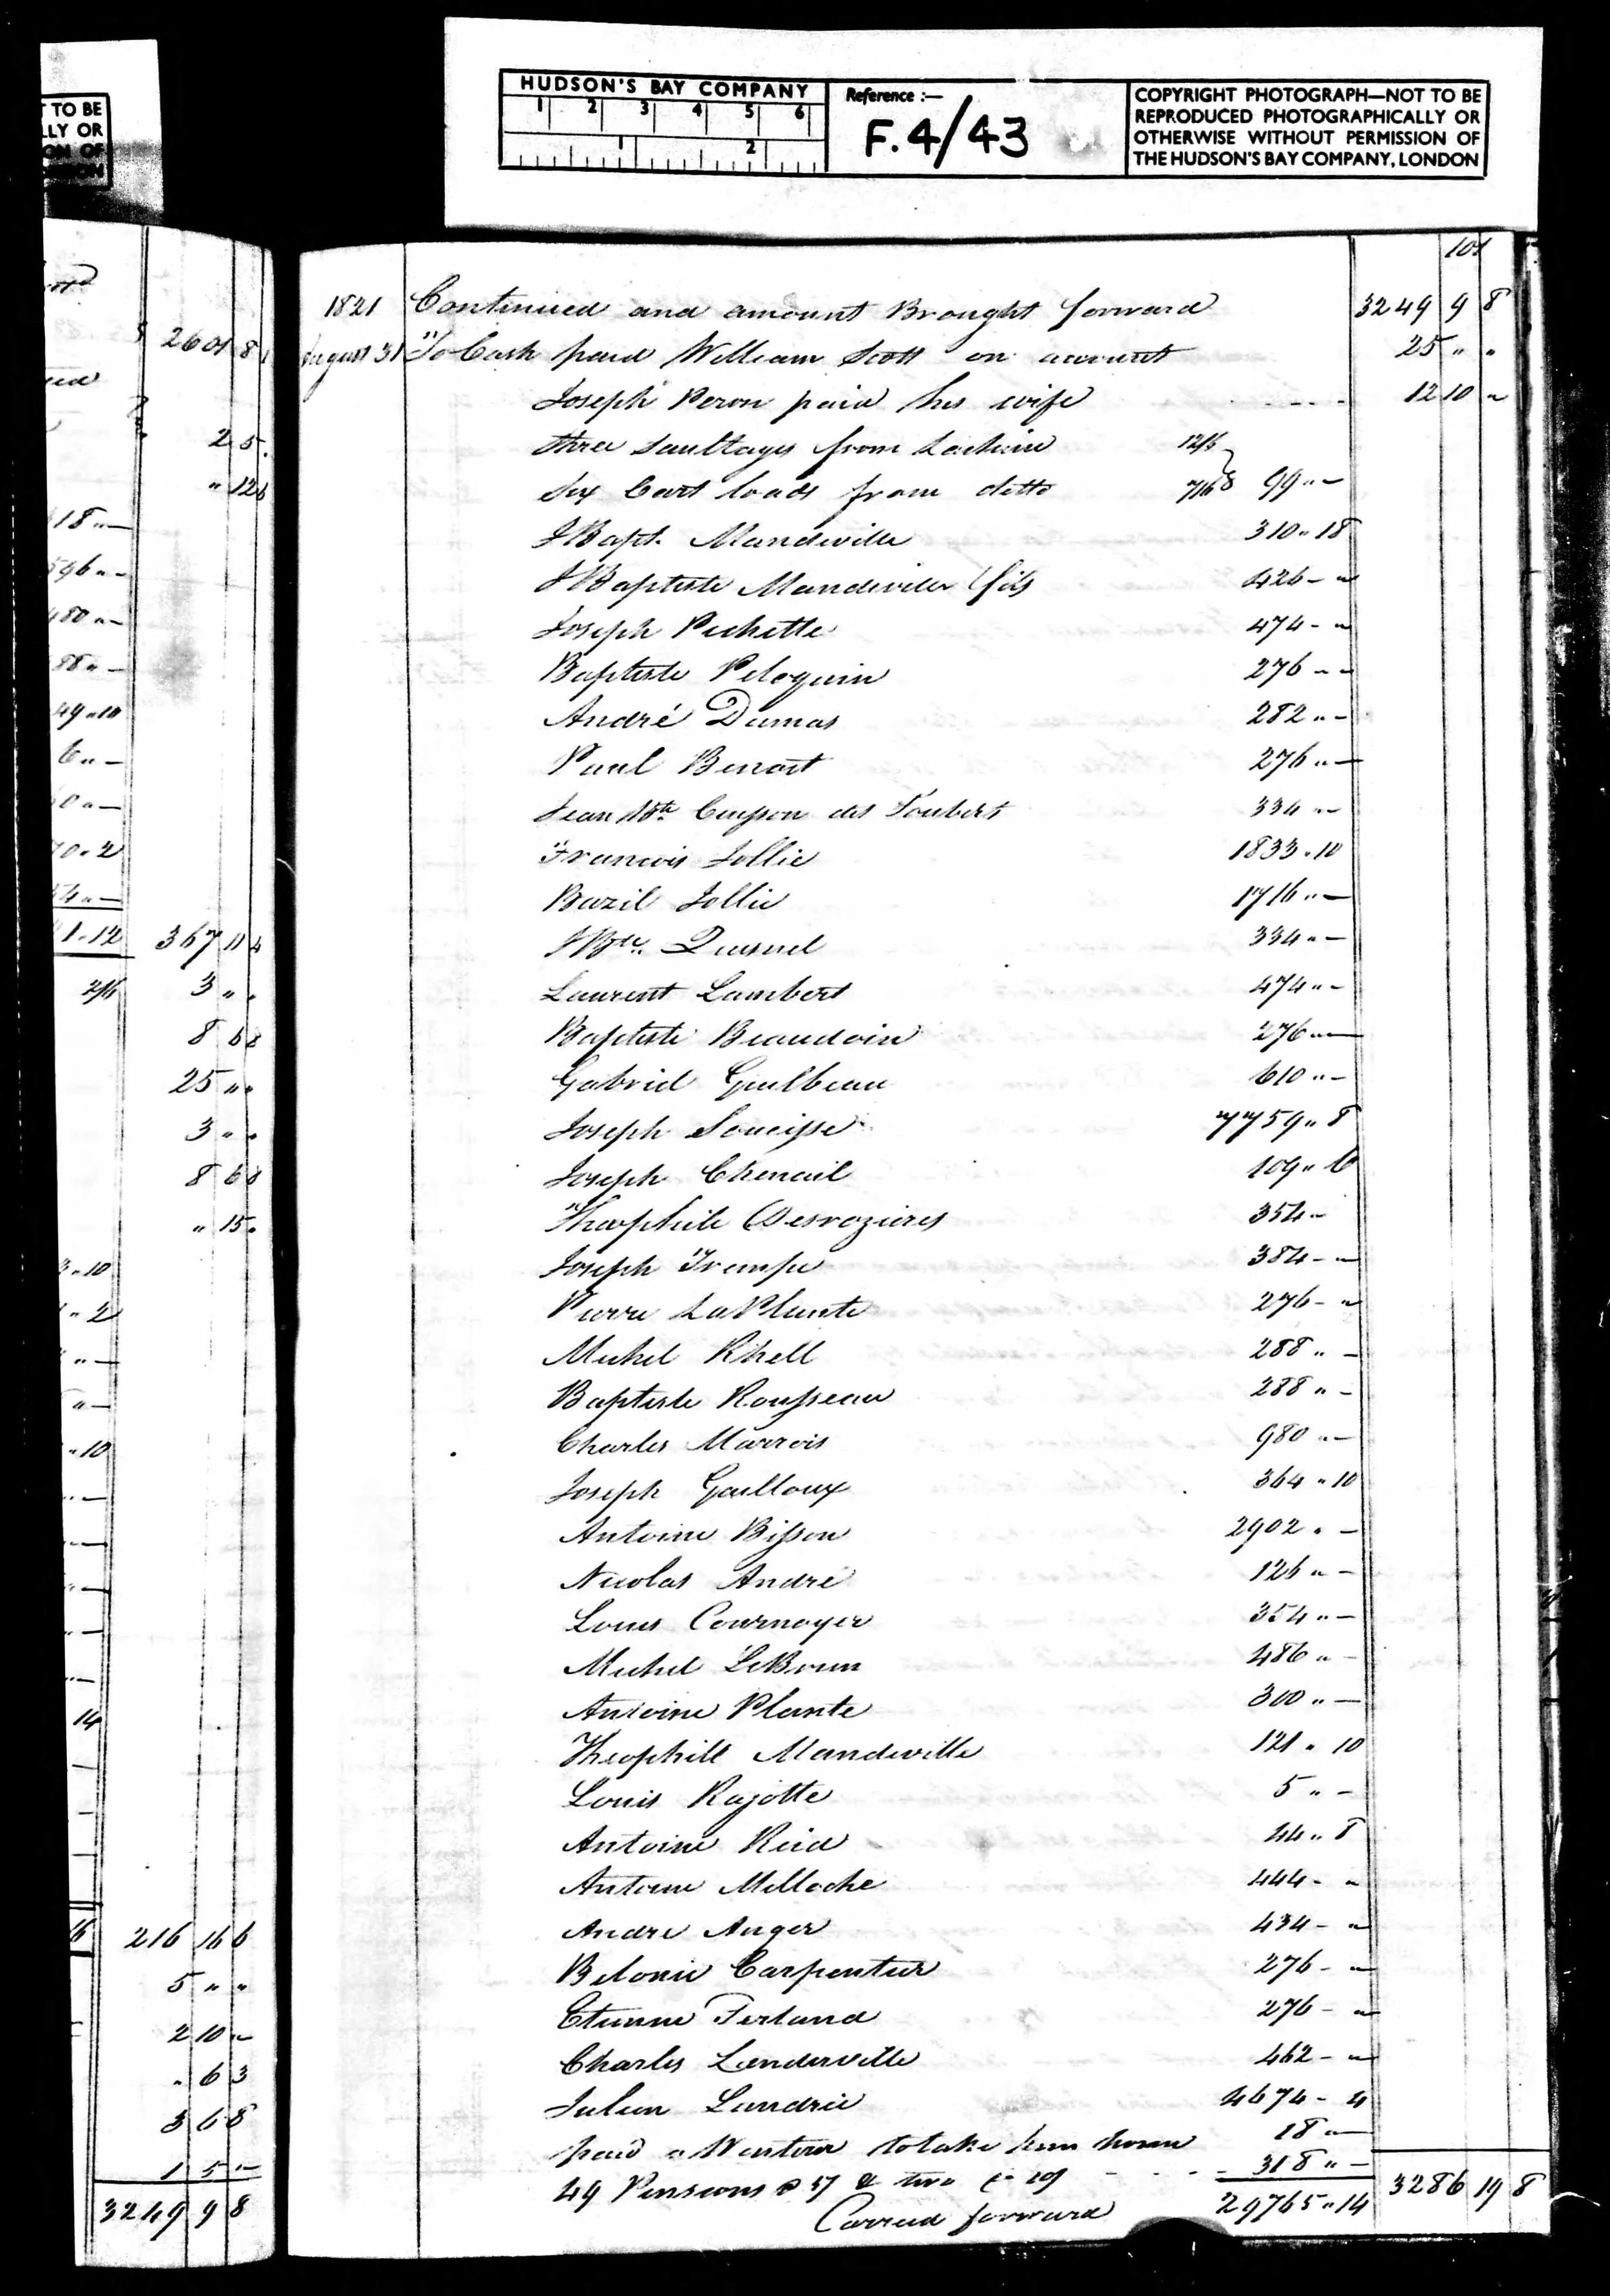 T TO BE
LLY OR
ON OF
HUDSON'S BAY COMPANY
1 2 3 4 5 6
1 2
Reference :—
F.4/43
COPYRIGHT PHOTOGRAPH—NOT TO BE
REPRODUCED PHOTOGRAPHICALLY OR
OTHERWISE WITHOUT PERMISSION OF
THE HUDSON'S BAY COMPANY, LONDON
2601 8
2 5
" 12 6
18 " —
596 " —
480 " —
88 " —
49 " 10
6 " —
0 " —
70 " 2
54 " —
1 " 12 367 11 4
2/6 3 " "
8 6 8
25 " "
3 " "
8 6 8
" 15 "
3 " 10
" 2
" —
" —
" 10
" —
" —
" —
" —
" —
14
216 16 6
5 " "
2 10 "
" 6 3
3 6 8
1 5 "
3249 9 8
101
1821 Continued and amount Brought forward 3249 9 8
August 31 To Cash paid William Scott on account 25 " "
Joseph Peron paid his wife 12 10 "
three Saultages from Lachine 12/6
Six Cart loads from ditto 7/6 99 " —
J Bapt. Mandeville 310 " 18
J Baptiste Mandeville fils 426 — "
Joseph Pichette 474 — "
Baptiste Peloquin 276 — "
André Dumas 282 " —
Paul Benoit 276 " —
Jean Bte Cusson des Joubert 334 " —
Francois Jollie 1833 " 10
Bazil Jollie 1716 " —
J Bte. Quesnel 334 " —
Laurent Lambert 474 " —
Baptiste Beaudoin 276 " —
Gabriel Guilbeau 610 " —
Joseph Soucisse 7759 " 8
Joseph Chenail 109 " 6
Theophile Desrozieres 354 —
Joseph Trempe 384 — "
Pierre LaPlante 276 — "
Michel Rhell 288 " —
Baptiste Rousseau 288 " —
Charles Marrois 980 " —
Joseph Gailloux 364 " 10
Antoine Bisson 2902 " —
Nicolas André 126 " —
Louis Cournoyer 354 " —
Michel LeBrun 486 " —
Antoine Plante 300 " —
Theophill Mandeville 121 " 10
Louis Rajotte 5 " —
Antoine Reid 44 " 8
Antoine Milloche 444 — "
Andre Auger 434 — "
Belonie Carpentier 276 — "
Etienne Ferland 276 — "
Charles Landerville 462 — "
Julien Landrie 4674 — 4
paid a to take him home 18 " —
49 Pensions @ 5/ & two @ 318 " —
Carried forward 29765 " 14 3286 19 8